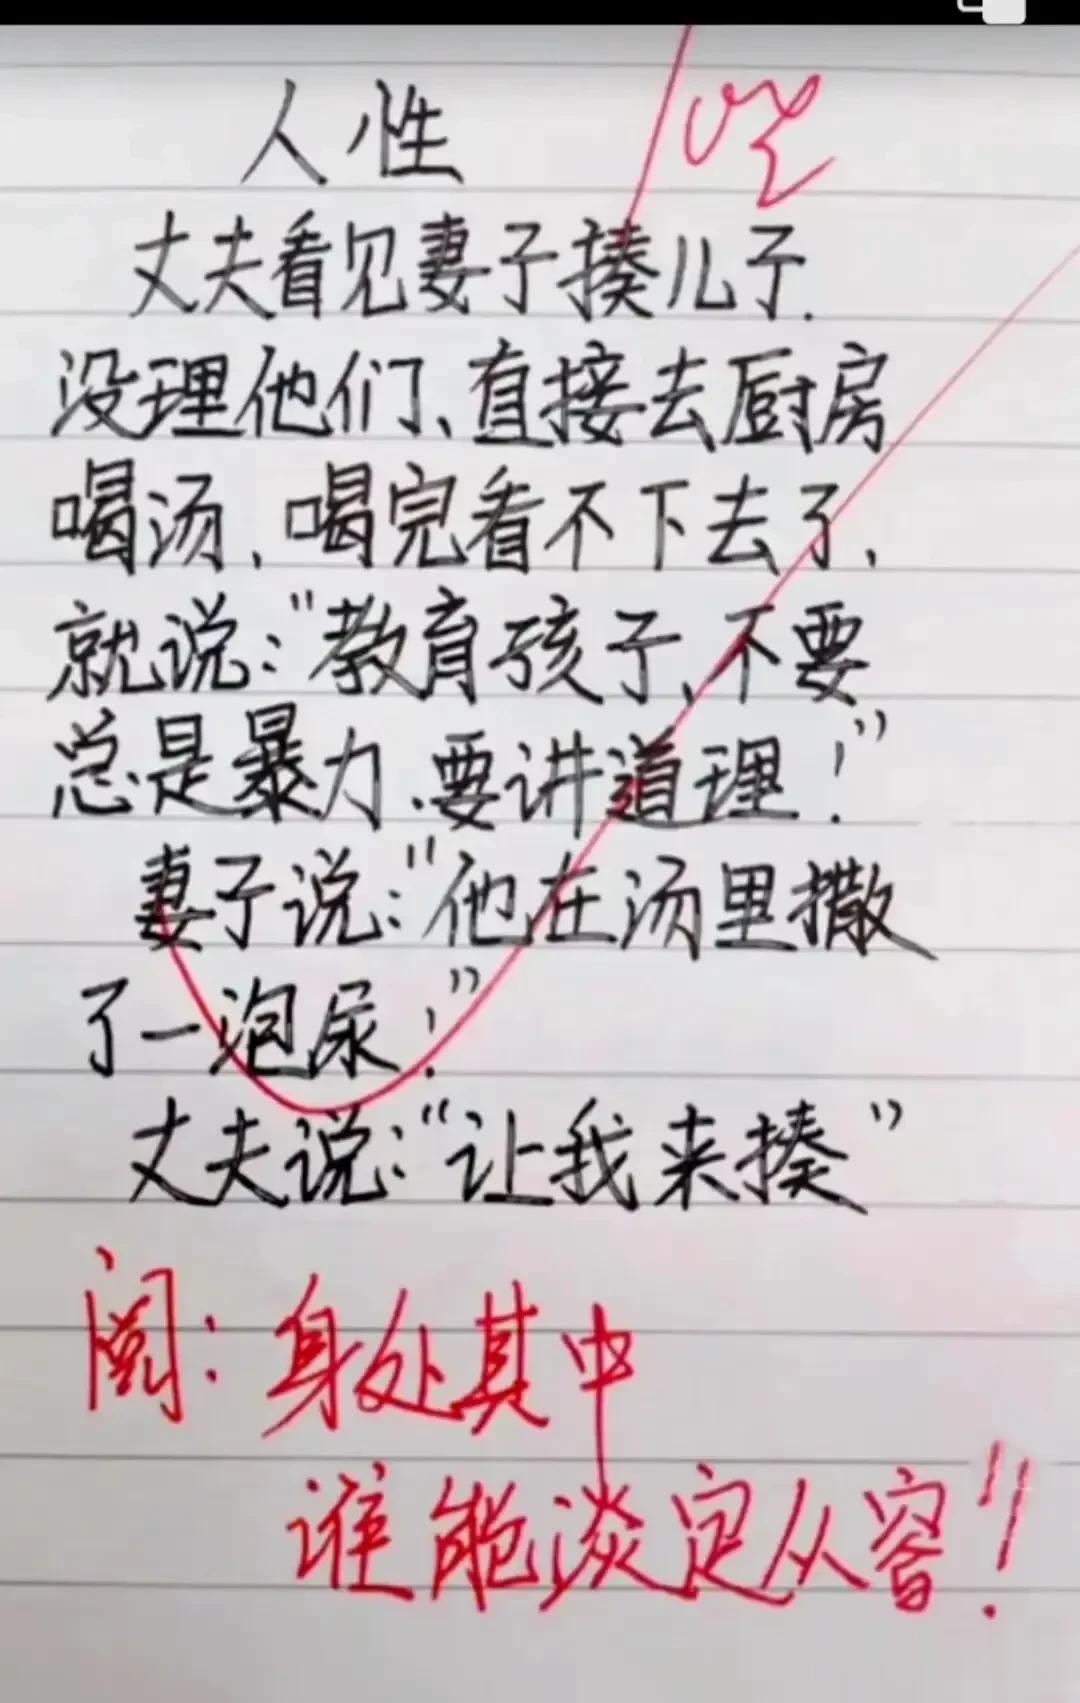 人性
丈夫看见妻子揍儿子.
没理他们、直接去厨房
喝汤、喝完看不下去了,
就说:"教育孩子、不要
总是暴力、要讲道理!"
妻子说:"他在汤里撒
了一泡尿!"
丈夫说:"让我来揍"
阅:身处其中
谁能淡定从容!!